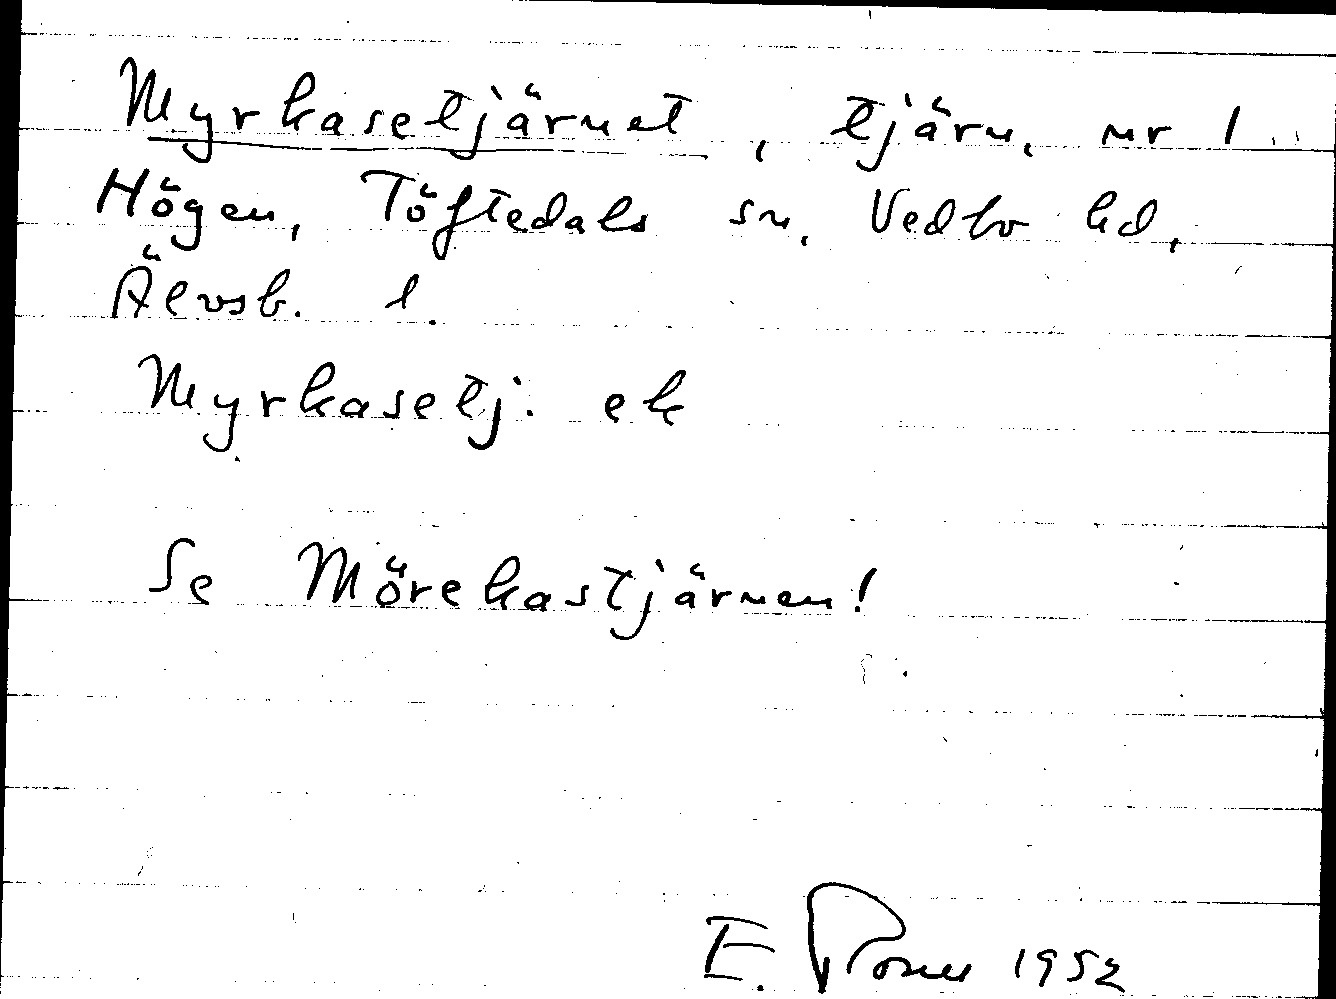 Myrkasetjärnet, tjärn, nr 1
Högen, Töftedals sn, Vedbo hd,
Älvsb. l.
Myrkasetj. ek
Se Mörekastjärnen!
E. 1952